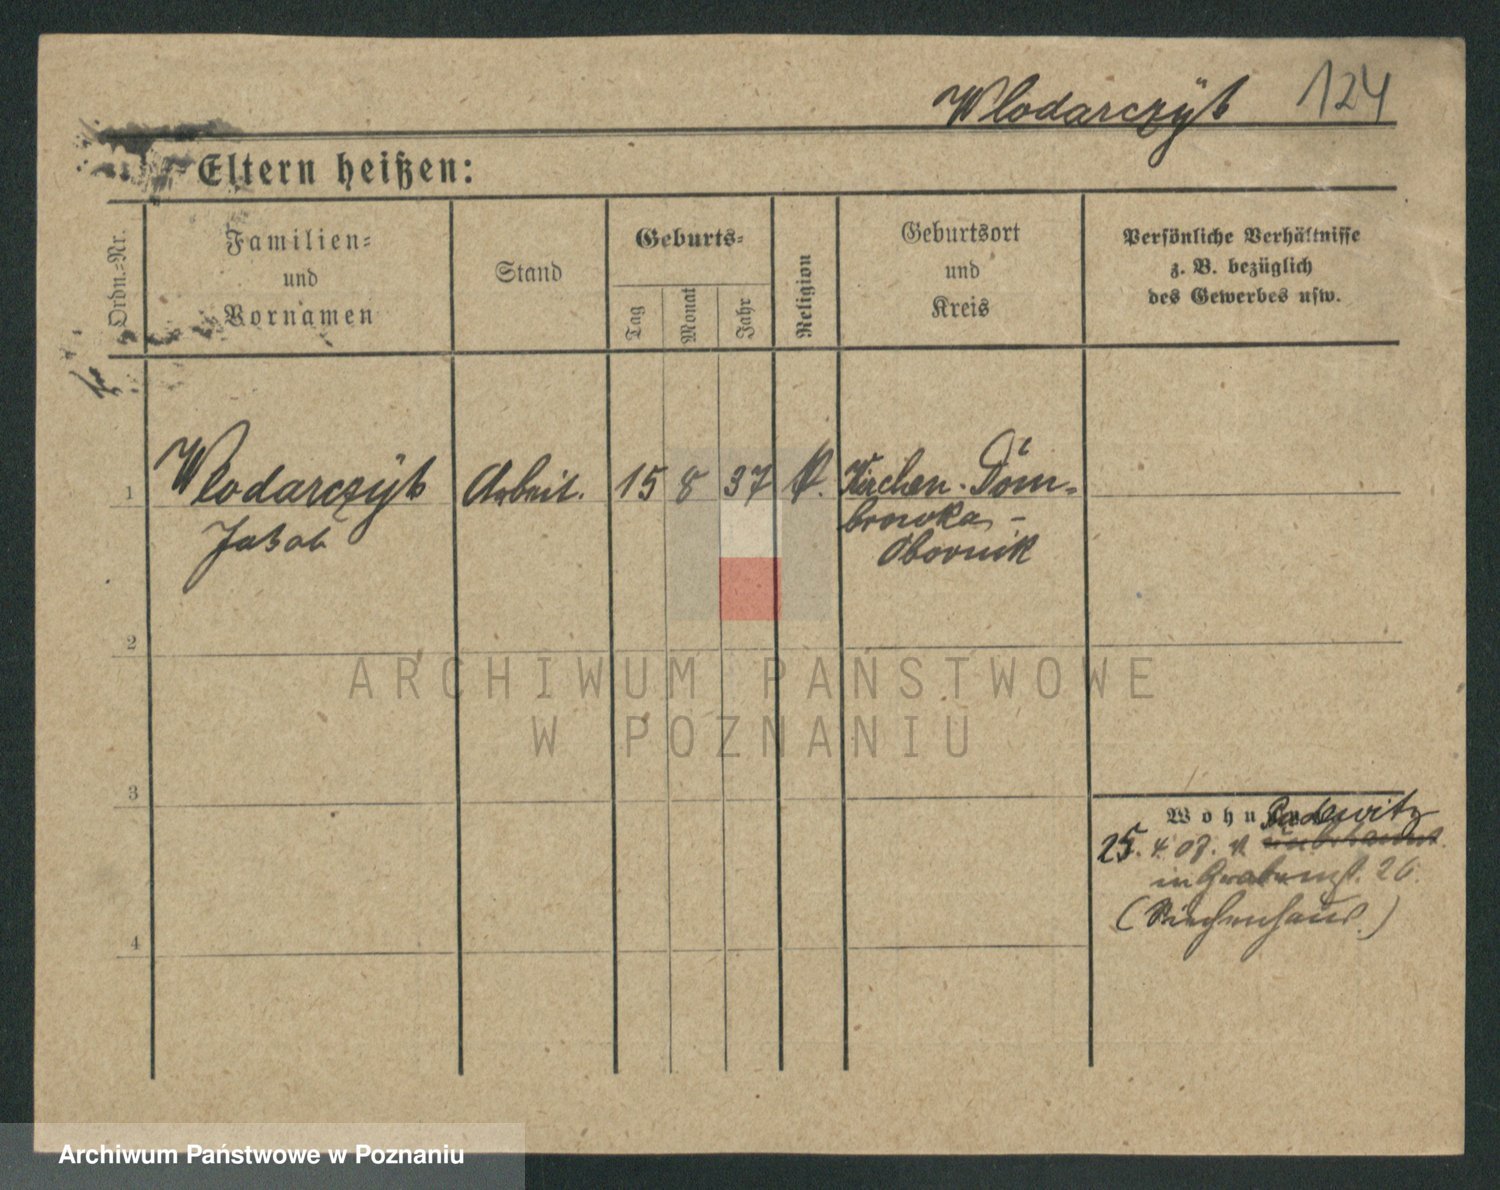 Wlodarczÿk 124
Eltern heißen:
Ordn.-Nr.
Familien-
und
Vornamen
Stand
Geburts-
Tag
Monat
Jahr
Religion
Geburtsort
und
Kreis
Persönliche Verhältnisse
z. B. bezüglich
des Gewerbes usw.
1 Wlodarczÿk Arbeit. 15 8 37 k. Kirchen-Dom-
Jakob browka-
Obornik
2
3
4
Podewitz
25. 4. 07. v
in Grabenst. 26.
(Siechenhaus.)
ARCHIWUM PAŃSTWOWE
W POZNANIU
Archiwum Państwowe w Poznaniu